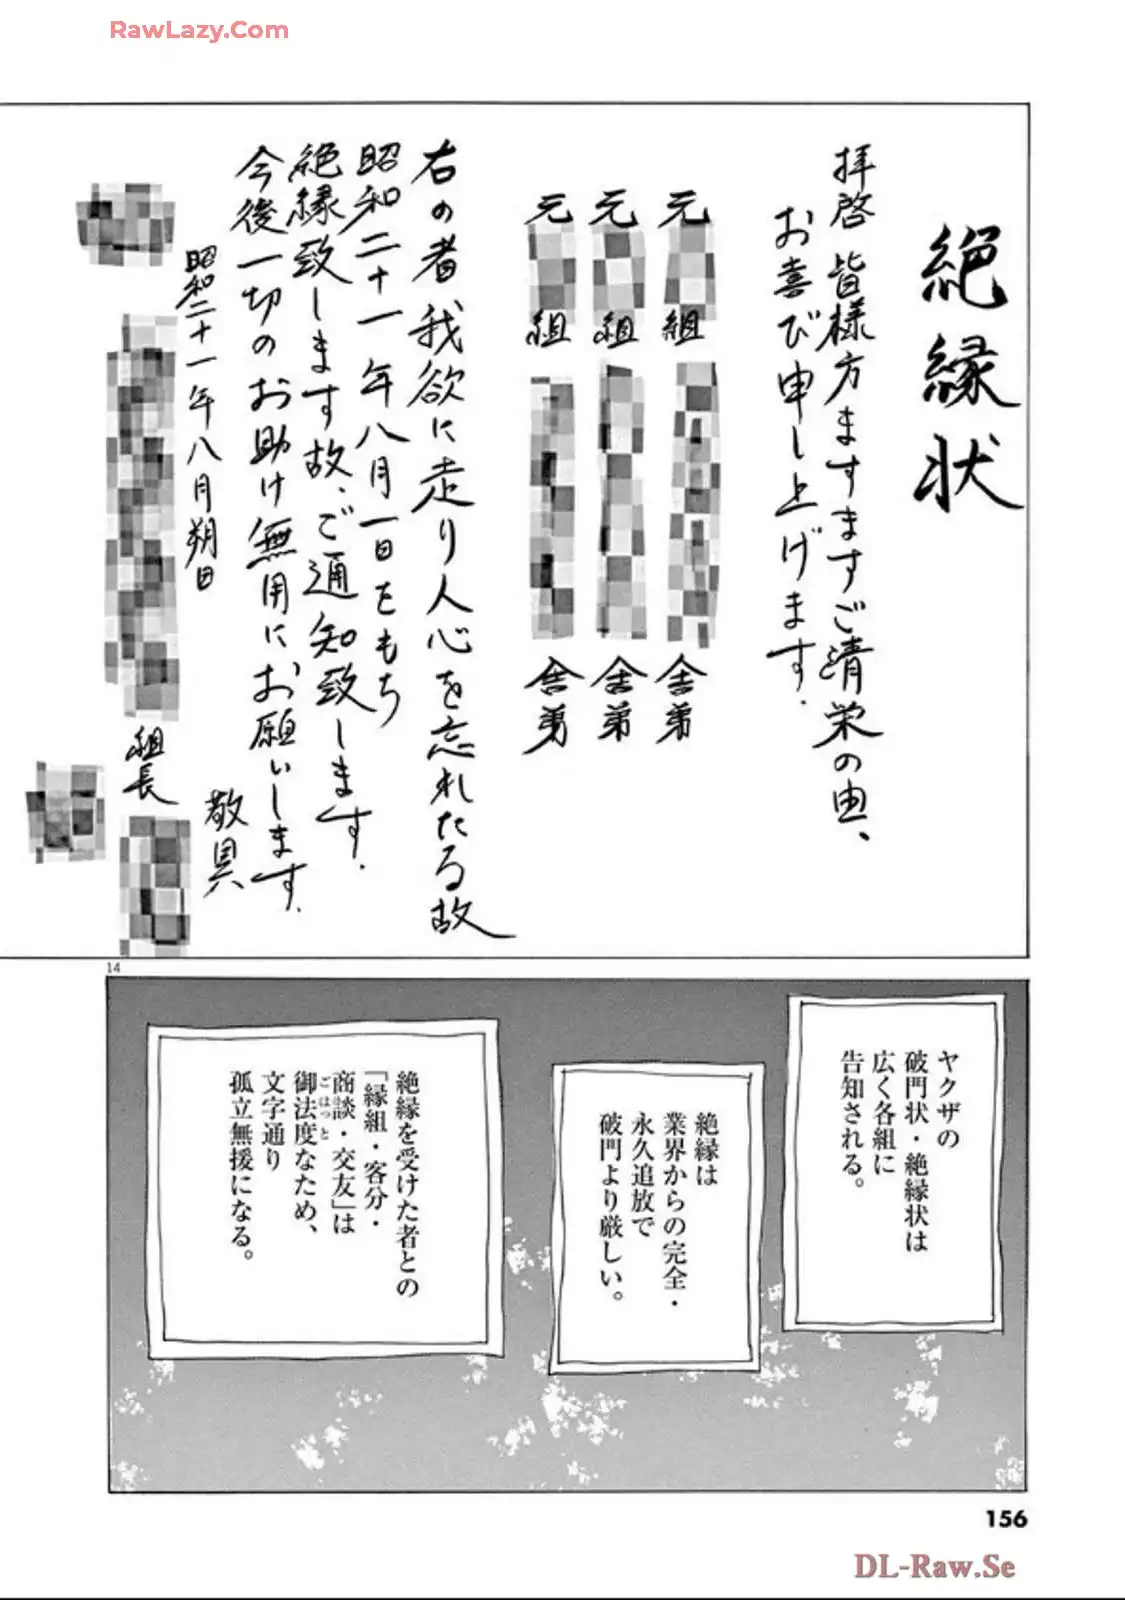 RawLazy.Com
絶縁状
拝啓 皆様方ますますご清栄の由、
お喜び申し上げます.
元
組
舎弟
元
組
舎弟
元
組
舎弟
右の者我欲に走り人心を忘れたる故
昭和二十一年八月一日をもち
絶縁致します故、ご通知致します.
今後一切のお助け無用にお願いします.
敬具
昭和二十一年八月朔日
組長
14
ヤクザの
破門状・絶縁状は
広く各組に
告知される。
絶縁は
業界からの完全・
永久追放で
破門より厳しい。
絶縁を受けた者との
「縁組・客分・
商談・交友」は
御法度なため、
ごはっと
文字通り
孤立無援になる。
156
DL-Raw.Se